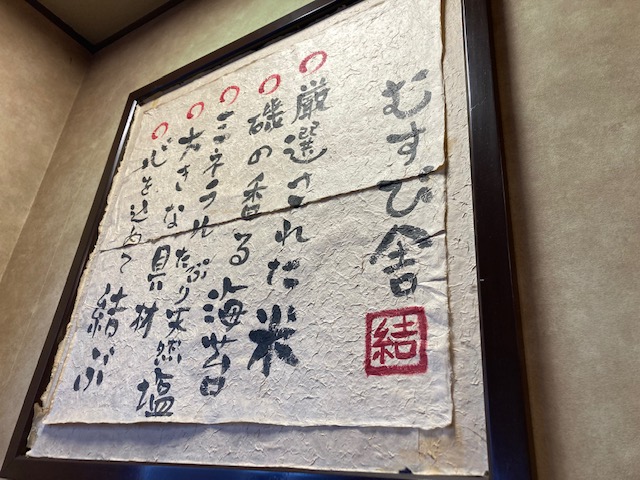 むすび舎
結
厳選された米
磯の香る海苔
ミネラルたっぷり天然塩
大きな具材
心を込めて結ぶ